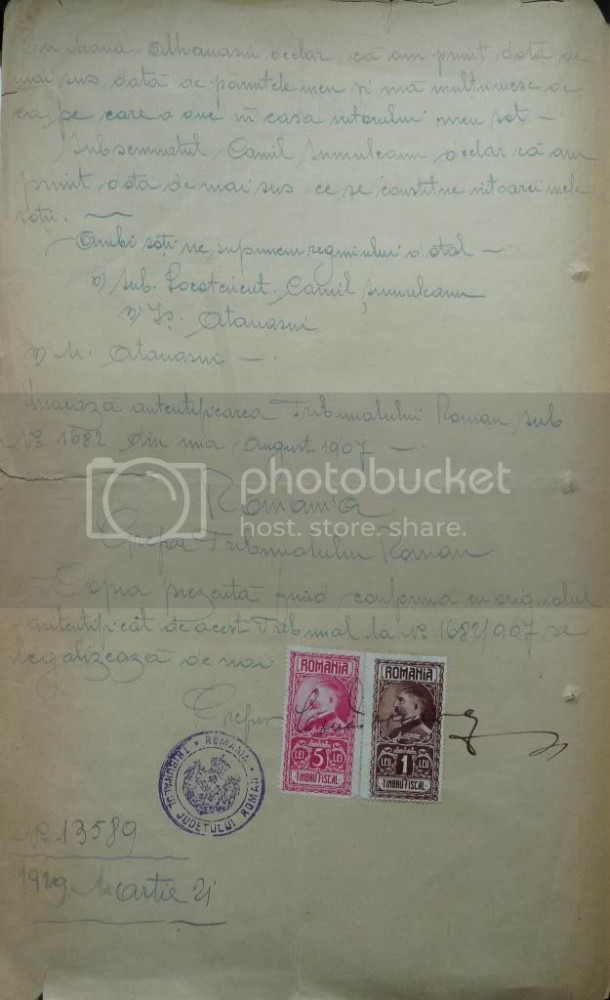 am primit dota de
mai sus, dată de părintele meu și mă mulțumesc de
ea pe care o duc în casa viitorului meu soț —
Subsemnatul Camil declar că am
primit dota de mai sus ce se constitue viitoarei mele
soții.
Ambi soți ne supunem regimului dotal —
Sub. Locotenent Camil
Atanasiu
M. Atanasiu —
Urmează autentificarea Tribunalului Roman sub
No 1682 din August 1907 —
România
Grefa Tribunalului Roman
Copia prezentă fiind conformă cu originalul
autentificat de acest Tribunal la No 1682/907 se
legalizează de noi
Grefier
photobucket
host. store. share.
ROMANIA
5 LEI
TIMBRU FISCAL
ROMANIA
1 LEU
TIMBRU FISCAL
ROMANIA TRIBUNALUL JUDEȚULUI ROMAN
No 13589
1929 Martie 21